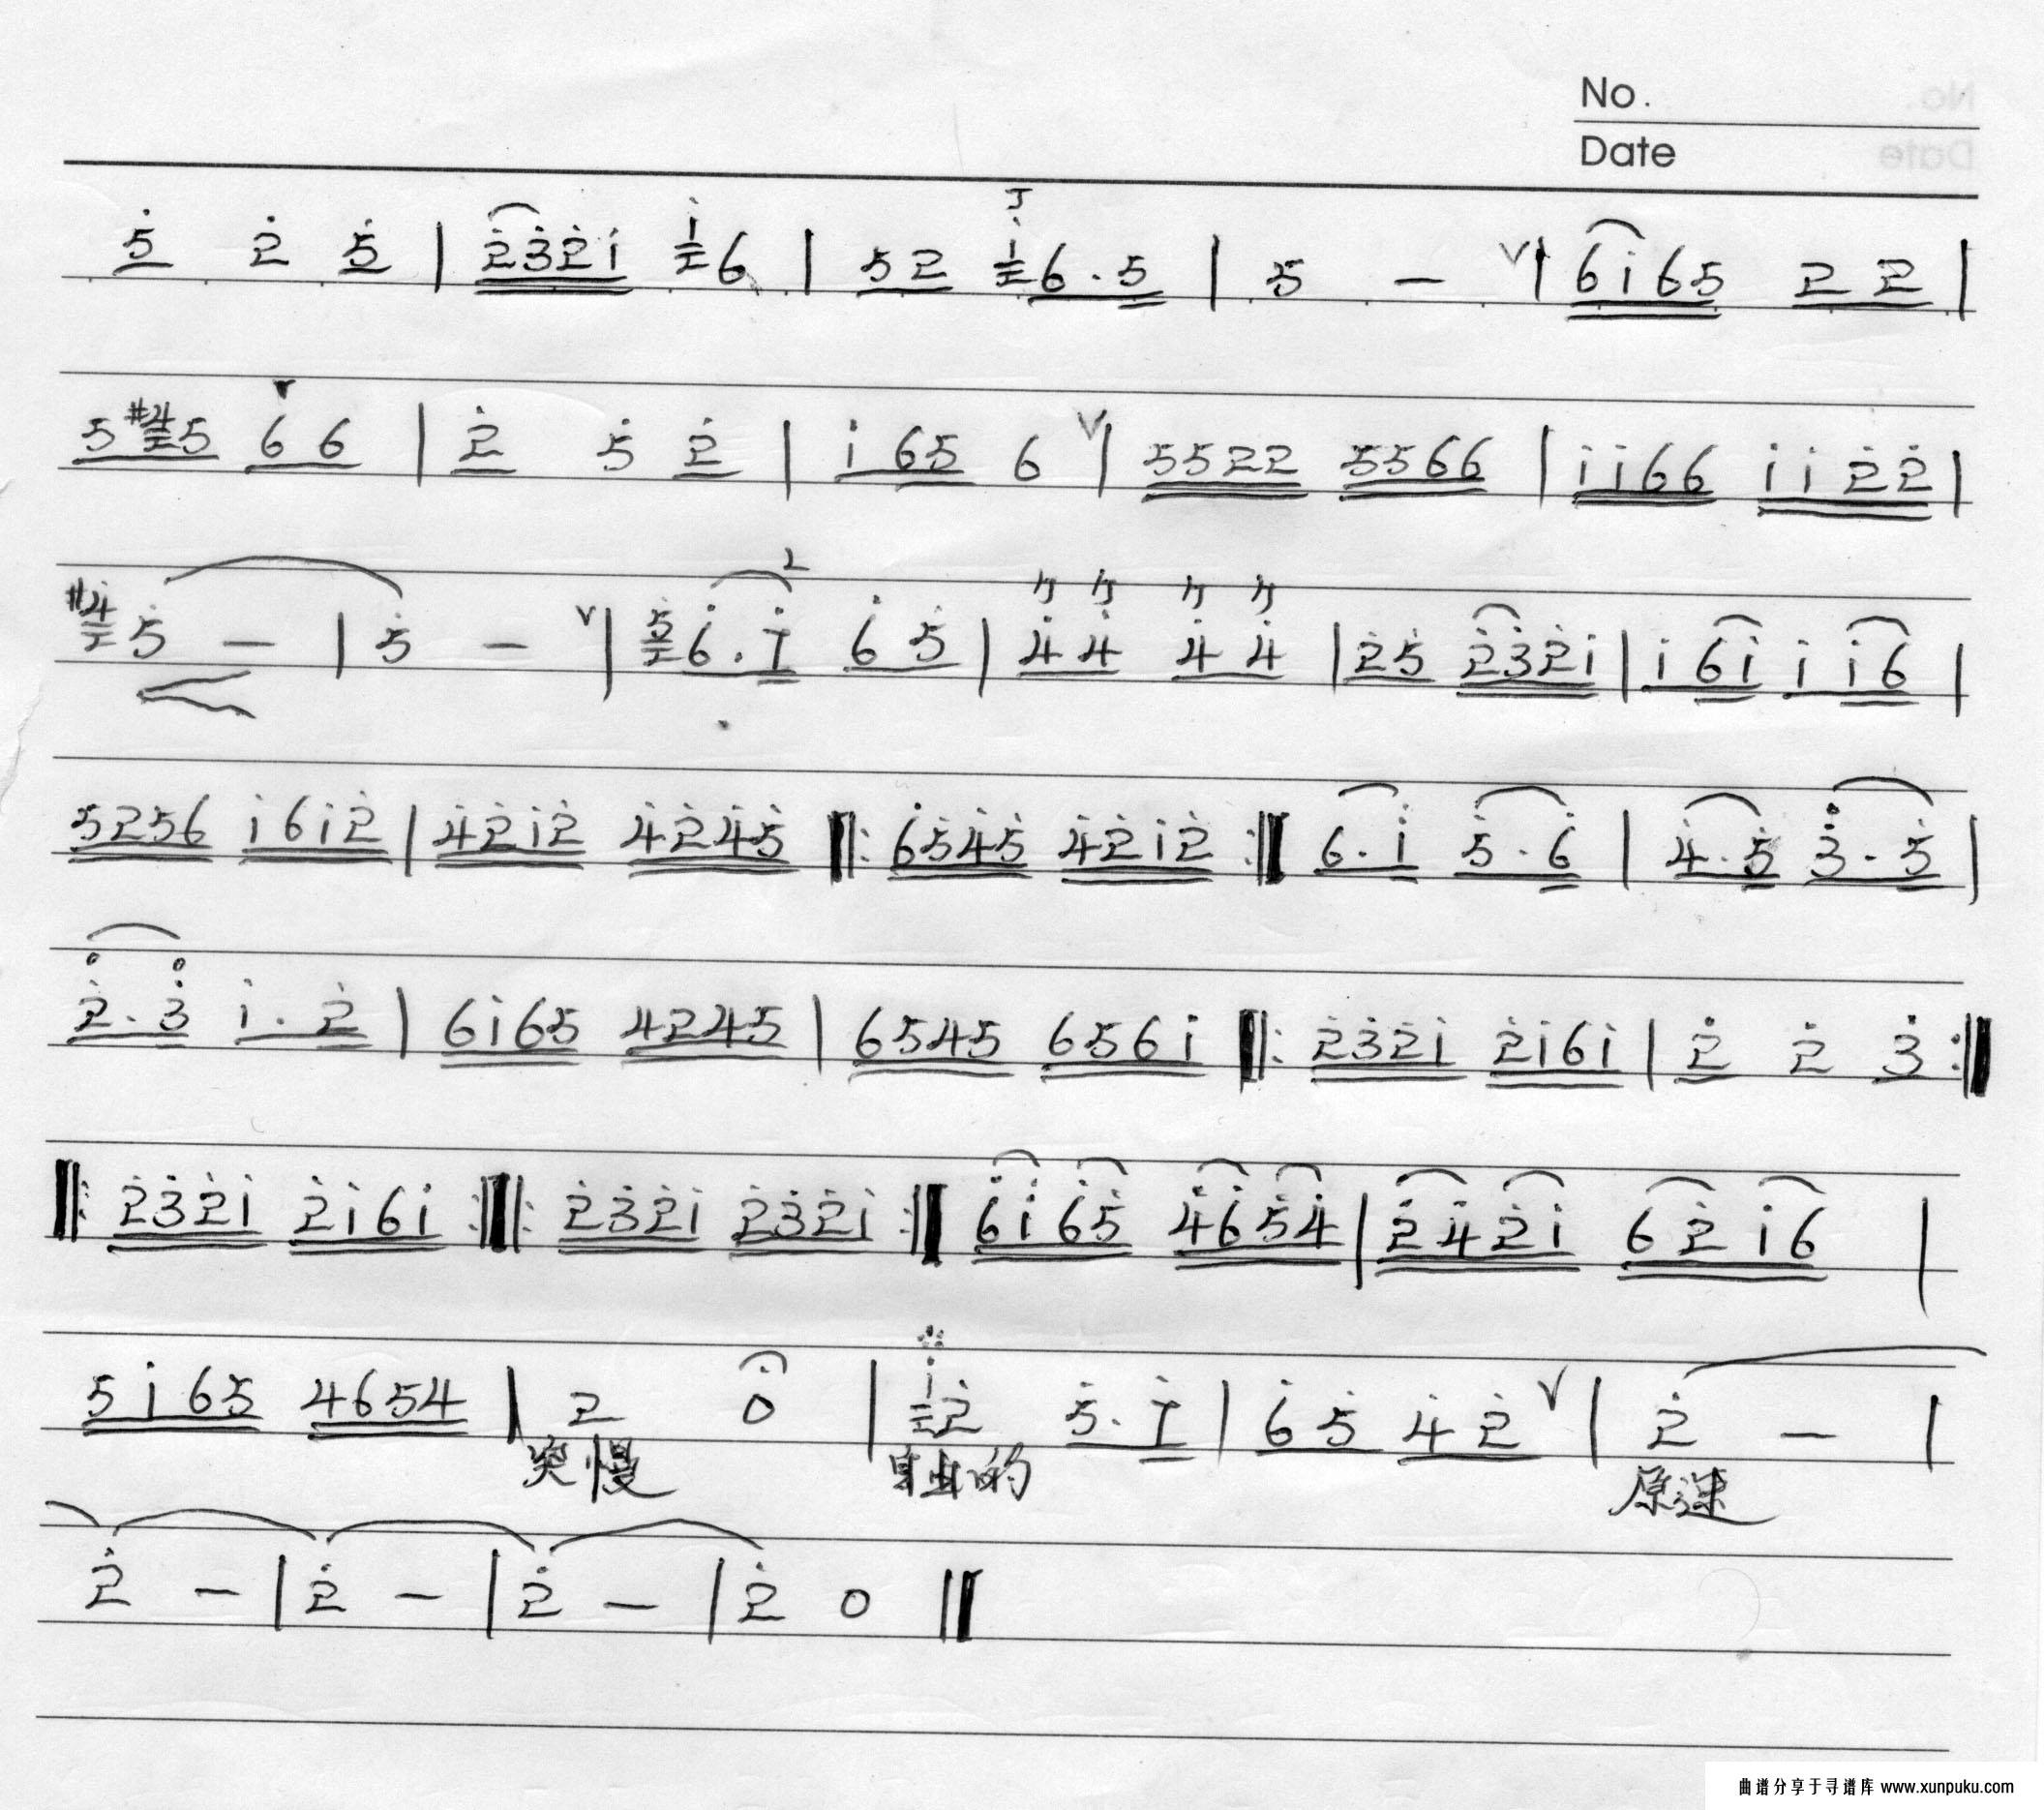 No.
Date
5̇ 2̇ 5̇ | 2̇3̇2̇1̇ 1̇6 | 52 1̇6·5 | 5 — ∨| 61̇65 22 |
5#45 66 | 2̇ 5̇ 2̇ | 1̇ 65 6 ∨| 5522 5566 | 1̇1̇66 1̇1̇2̇2̇ |
#4̇5̇ — | 5̇ — ∨| 5̇6̇·1̇ 6̇5̇ | 4̇4̇ 4̇4̇ | 2̇5̇ 2̇3̇2̇1̇ | 1̇ 61̇ 1̇ 1̇6 |
5256 1̇61̇2̇ | 4̇2̇1̇2̇ 4̇2̇4̇5̇ ‖: 6̇5̇4̇5̇ 4̇2̇1̇2̇ :‖ 6·1̇ 5̇·6̇ | 4̇·5̇ 3̇·5̇ |
2̇·3̇ 1̇·2̇ | 61̇65 4245 | 6545 6561̇ ‖: 2̇3̇2̇1̇ 2̇1̇61̇ | 2̇ 2̇ 3̇ :‖
‖: 2̇3̇2̇1̇ 2̇1̇61̇ :‖: 2̇3̇2̇1̇ 2̇3̇2̇1̇ :‖ 6̇1̇6̇5̇ 4̇6̇5̇4̇ | 2̇4̇2̇1̇ 62̇1̇6 |
51̇65 4654 | 2 0 | 1̇2̇ 5̇·1̇ | 6̇5̇ 4̇2̇ ∨| 2̇ — |
突慢 自由的 原速
2̇ — | 2̇ — | 2̇ — | 2̇ 0 ‖
曲谱分享于寻谱库 www.xunpuku.com